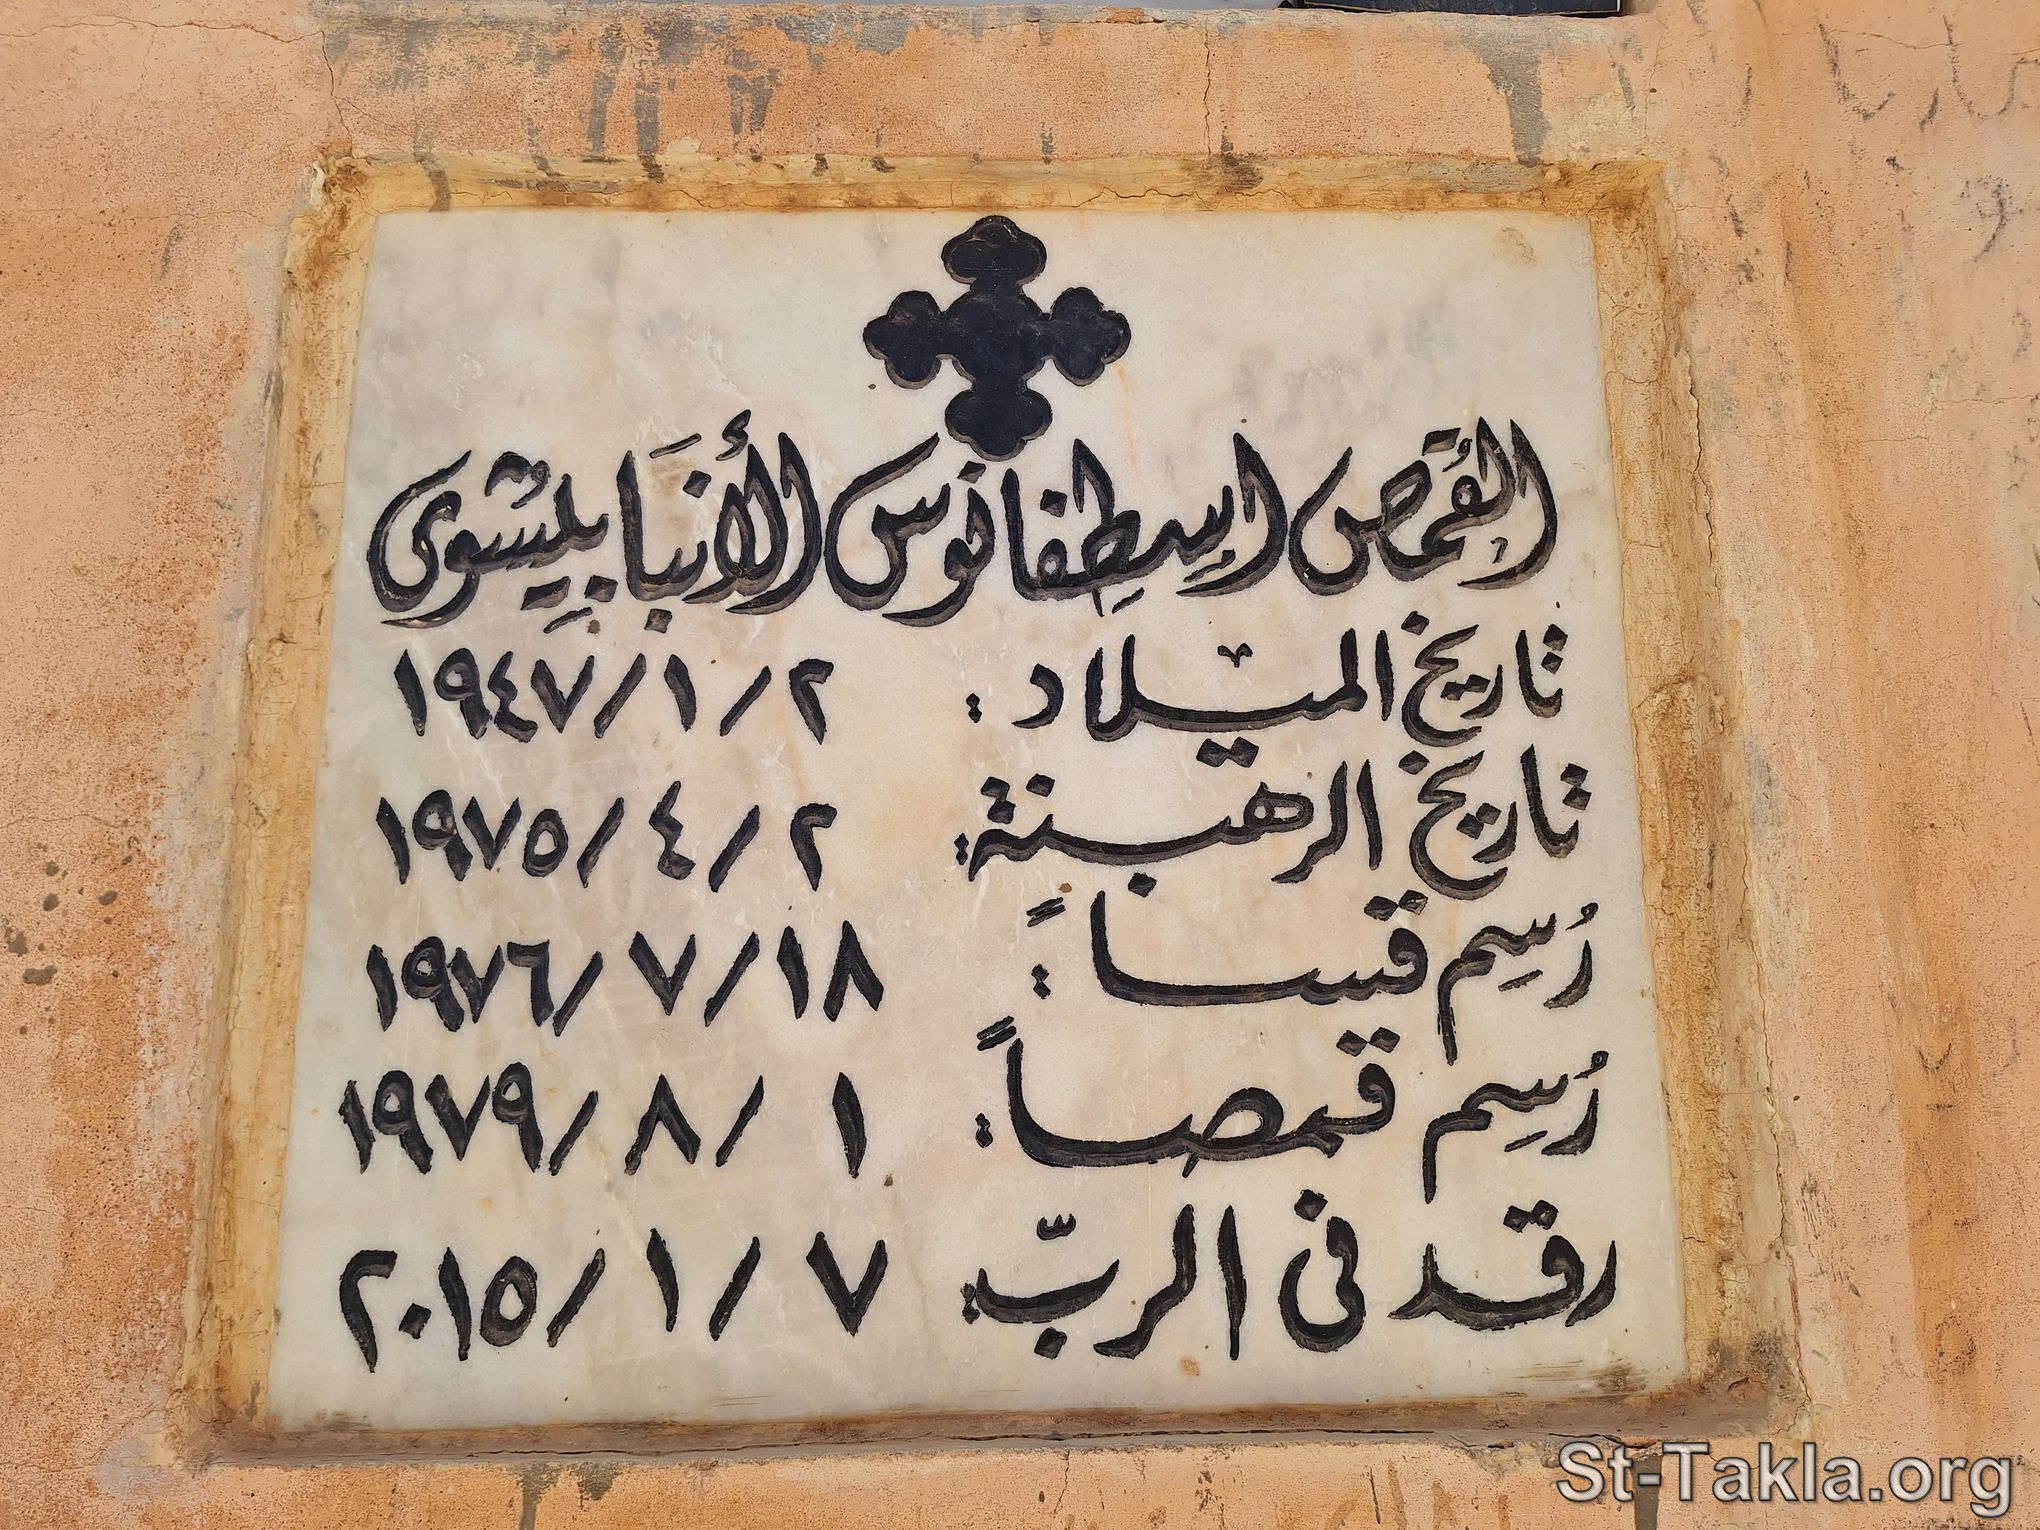 القُمص إسطِفانوس الأنبَا بيِشُوى
تاريخ الميلاد : ٢ / ١ / ١٩٤٧
تاريخ الرهبنة : ٢ / ٤ / ١٩٧٥
رُسِم قسساً : ١٨ / ٧ / ١٩٧٦
رُسِم قمصاً : ١ / ٨ / ١٩٧٩
رقد فى الربّ : ٧ / ١ / ٢٠١٥
St-Takla.org